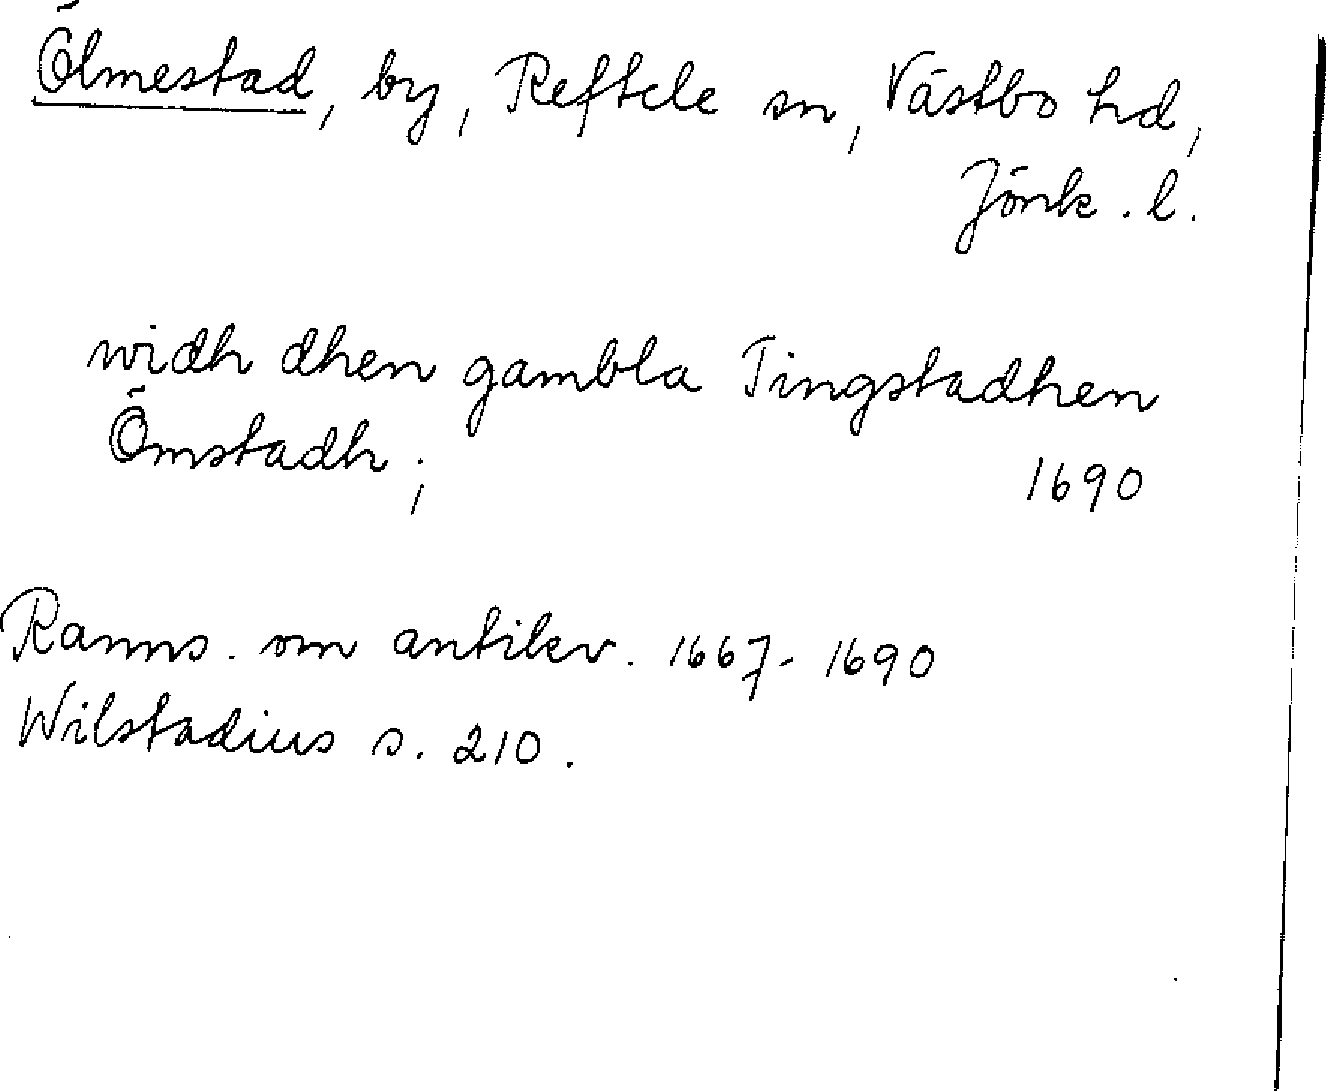 Ölmestad, by, Reftele sn, Västbo hd,
Jönk. l.
widh dhen gambla Tingstadhen
Ömstadh; 1690
Ranns. om antikv. 1667-1690
Wilstadius s. 210.